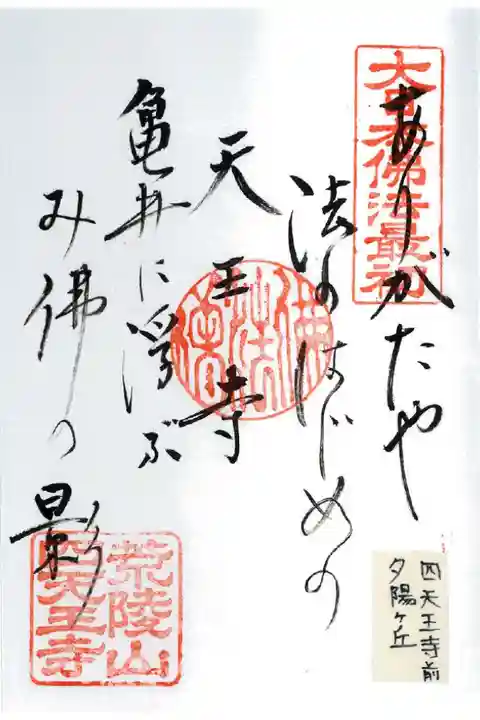 大日本佛法最初
ありがたや
法のはじめの
天王寺
亀井に浮ぶ
み佛の影
荒陵山
四天王寺
四天王寺前
夕陽ヶ丘